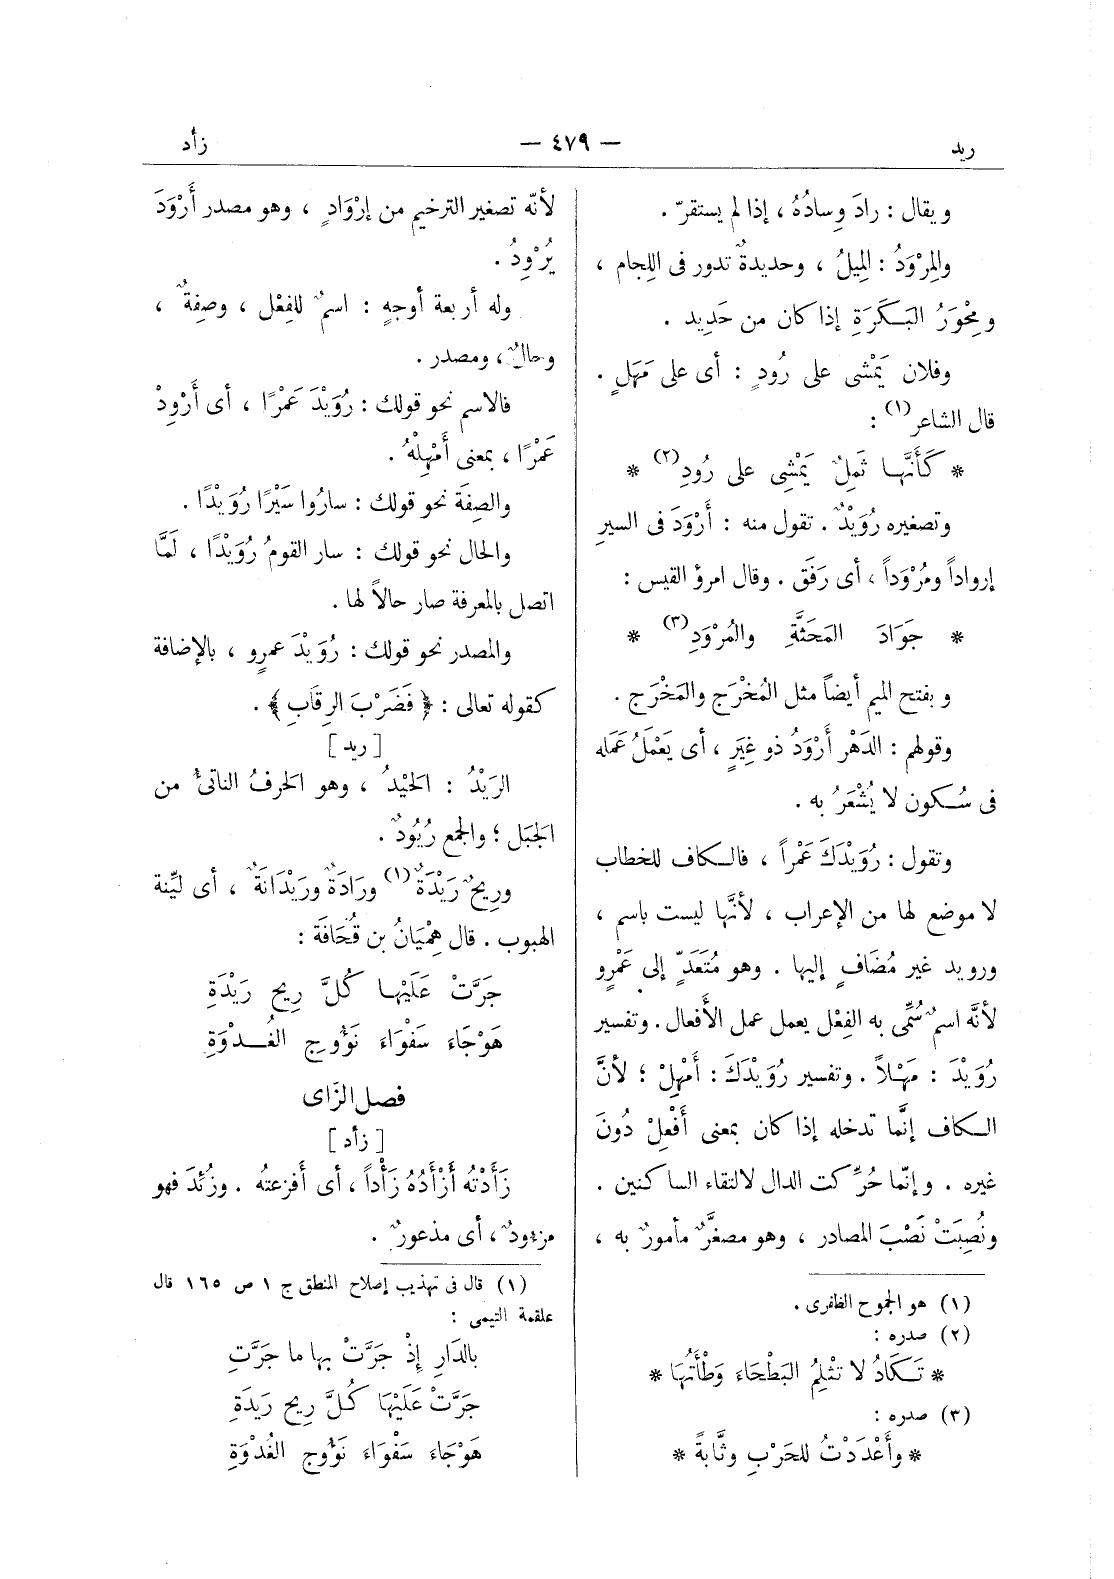 ريد
— ٤٧٩ —
زأد
ويقال : رادَ وِسادُهُ ، إذا لم يستقرّ .
والمِرْوَدُ : المِيلُ ، وحديدةٌ تدور فى اللِجام ،
ومِحْوَرُ البَكَرَةِ إذا كان من حَدِيد .
وفلان يَمْشى على رُودٍ : أى على مَهَلٍ .
قال الشاعر(١) :
* كَأَنَّها ثَمِلٌ يَمْشِى على رُودِ(٢) *
وتصغيره رُوَيْدٌ . تقول منه : أَرْوَدَ فى السيرِ
إرواداً ومُرْوَداً ، أى رَفَق . وقال امرؤ القيس :
* جَوَادَ المَحَثَّةِ والمُرْوَدِ(٣) *
وبفتح الميم أيضاً مثل المُخْرَج والمَخْرَج .
وقولهم : الدَهْر أَرْوَدُ ذو غِيَرٍ ، أى يَعْمَلُ عَمَله
فى سُكون لا يُشْعَرُ به .
وتقول : رُوَيْدَكَ عَمْراً ، فالكاف للخطاب
لا موضع لها من الإعراب ، لأنَّها ليست باسم ،
ورويد غير مُضَافٍ إليها . وهو مُتَعَدٍّ إلى عَمْرٍو
لأنَّه اسمٌ سُمِّى به الفِعْل يعمل عمل الأَفعال . وتفسير
رُوَيْدَ : مَهْلاً . وتفسير رُوَيْدَكَ : أَمْهِلْ ؛ لأنَّ
الكاف إنَّما تدخله إذا كان بمعنى أَفْعِلْ دُونَ
غيره . وإنّما حُرِّكت الدال لالتقاء الساكنين .
ونُصِبَتْ نَصْبَ المصادر ، وهو مصغَّرٌ مأمورٌ به ،
(١) هو الجموح الظفرى .
(٢) صدره :
* تَكَادُ لا تَثْلِمُ البَطْحَاءَ وَطْأَتُهَا *
(٣) صدره :
* وأَعْدَدْتُ للحَرْبِ وثَّابةً *
لأنّه تصغير الترخيم من إرْوَادٍ ، وهو مصدر أَرْوَدَ
يُرْوِدُ .
وله أربعة أوجهٍ : اسمٌ للفِعْل ، وصِفةٌ ،
وحالٌ ، ومصدر .
فالاسم نحو قولك : رُوَيْدَ عَمْرًا ، أى أَرْوِدْ
عَمْرًا ، بمعنى أَمْهِلْهُ .
والصِفَة نحو قولك : سارُوا سَيْرًا رُوَيْدًا .
والحال نحو قولك : سار القومُ رُوَيْدًا ، لَمَّا
اتصل بالمعرفة صار حالاً لها .
والمصدر نحو قولك : رُوَيْدَ عمرٍو ، بالإضافة
كقوله تعالى : ﴿ فَضَرْبَ الرِقَابِ ﴾ .
[ ريد ]
الرَيْدُ : الحَيْدُ ، وهو الحرفُ الناتئُ من
الجَبَل ؛ والجمع رُيُودٌ .
وريحٌ رَيْدَةٌ(١) ورَادَةٌ ورَيْدَانَةٌ ، أى ليِّنة
الهبوب . قال هِمْيَانُ بن قُحَافَة :
جَرَّتْ عَلَيْهَا كُلَّ رِيحٍ رَيْدَةِ
هَوْجَاءَ سَفْوَاءَ نَؤُوجِ الغُدْوَةِ
فصل الزَاى
[ زأد ]
زَأَدْتُه أَزْأَدُهُ زَأْداً ، أى أفزعتهُ . وزُئِدَ فهو
مزءودٌ ، أى مذعورٌ .
(١) قال فى تهذيب إصلاح المنطق ج ١ ص ١٦٥ قال
علقمة التيمى :
بالدَارِ إذْ جَرَّتْ بها ما جَرَّتِ
جَرَّتْ عَلَيْهَا كُلَّ رِيحٍ رَيْدَةِ
هَوْجَاءَ سَفْوَاءَ نَؤُوجِ الغُدْوَةِ